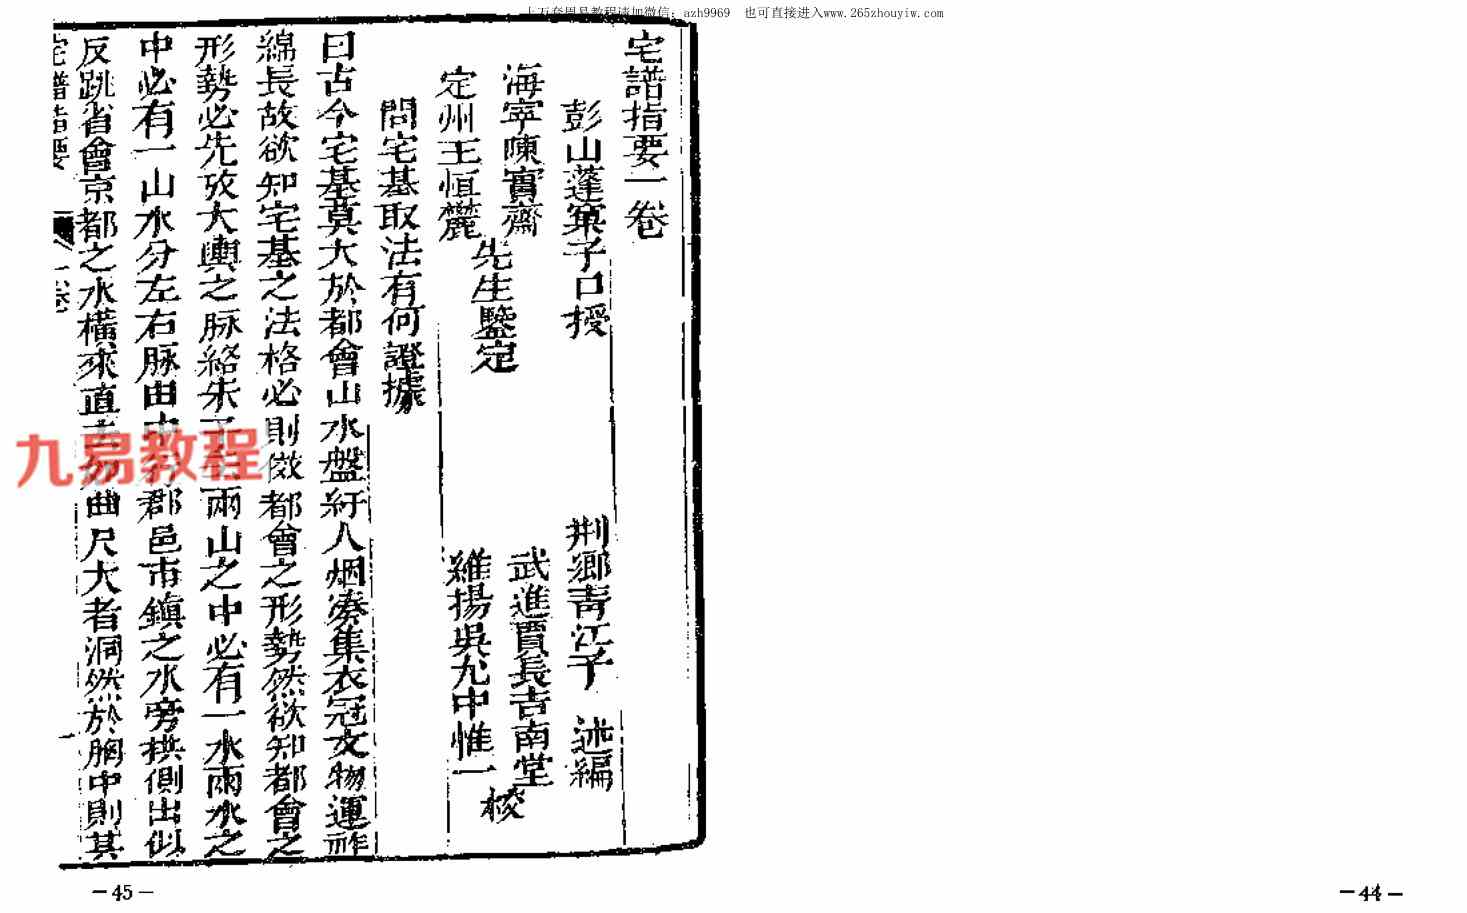 上万套周易教程请加微信：azh9969　也可直接进入www.265zhouyiw.com
宅譜指要一卷
彭山蓬窠子口授
荆鄉青江子　述編
海寧陳實齋
武進賈長吉南堂
定州王恒麓
先生鑒定
維揚吳九中惟一
校
問宅基取法有何證據
曰古今宅基莫大於都會山水盤紆人烟湊集衣冠文物運祚
綿長故欲知宅基之法格必則傚都會之形勢然欲知都會之
形勢必先攷大輿之脉絡朱子云兩山之中必有一水兩水之
中必有一山水分左右脉由中行郡邑市鎮之水旁拱側出似
反跳省會京都之水橫來直去勿曲尺大者洞然於胸中則其
宅譜指要
一卷
一
九易教程
－45－
－44－